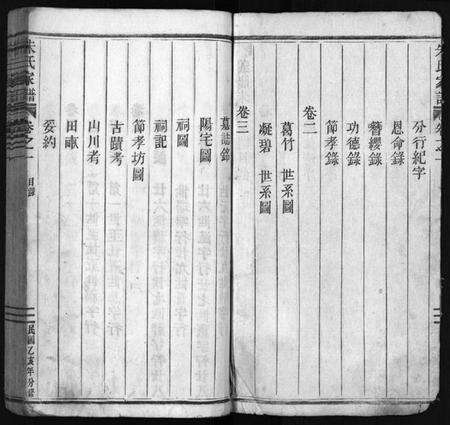 朱氏家譜
卷之一
分行紀字
恩命錄
簪纓錄
功德錄
節孝錄
卷二
葛竹 世系圖
凝碧 世系圖
卷三
墓誌錄
陽宅圖
祠圖
祠記
節孝坊圖
古蹟考
山川考
田畝
妥約
朱氏家譜
卷之一
目錄
民國乙亥年分晉